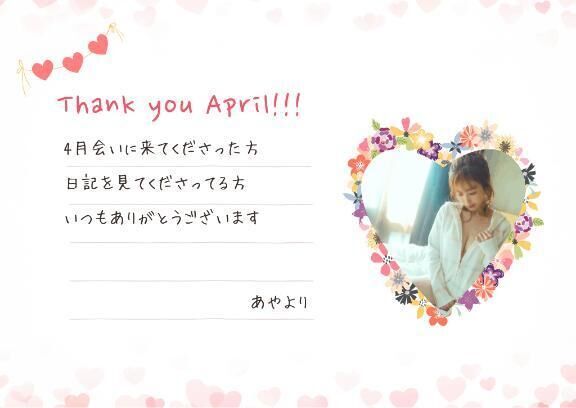 Thank you April!!!
4月会いに来てくださった方
日記を見てくださってる方
いつもありがとうございます
あやより